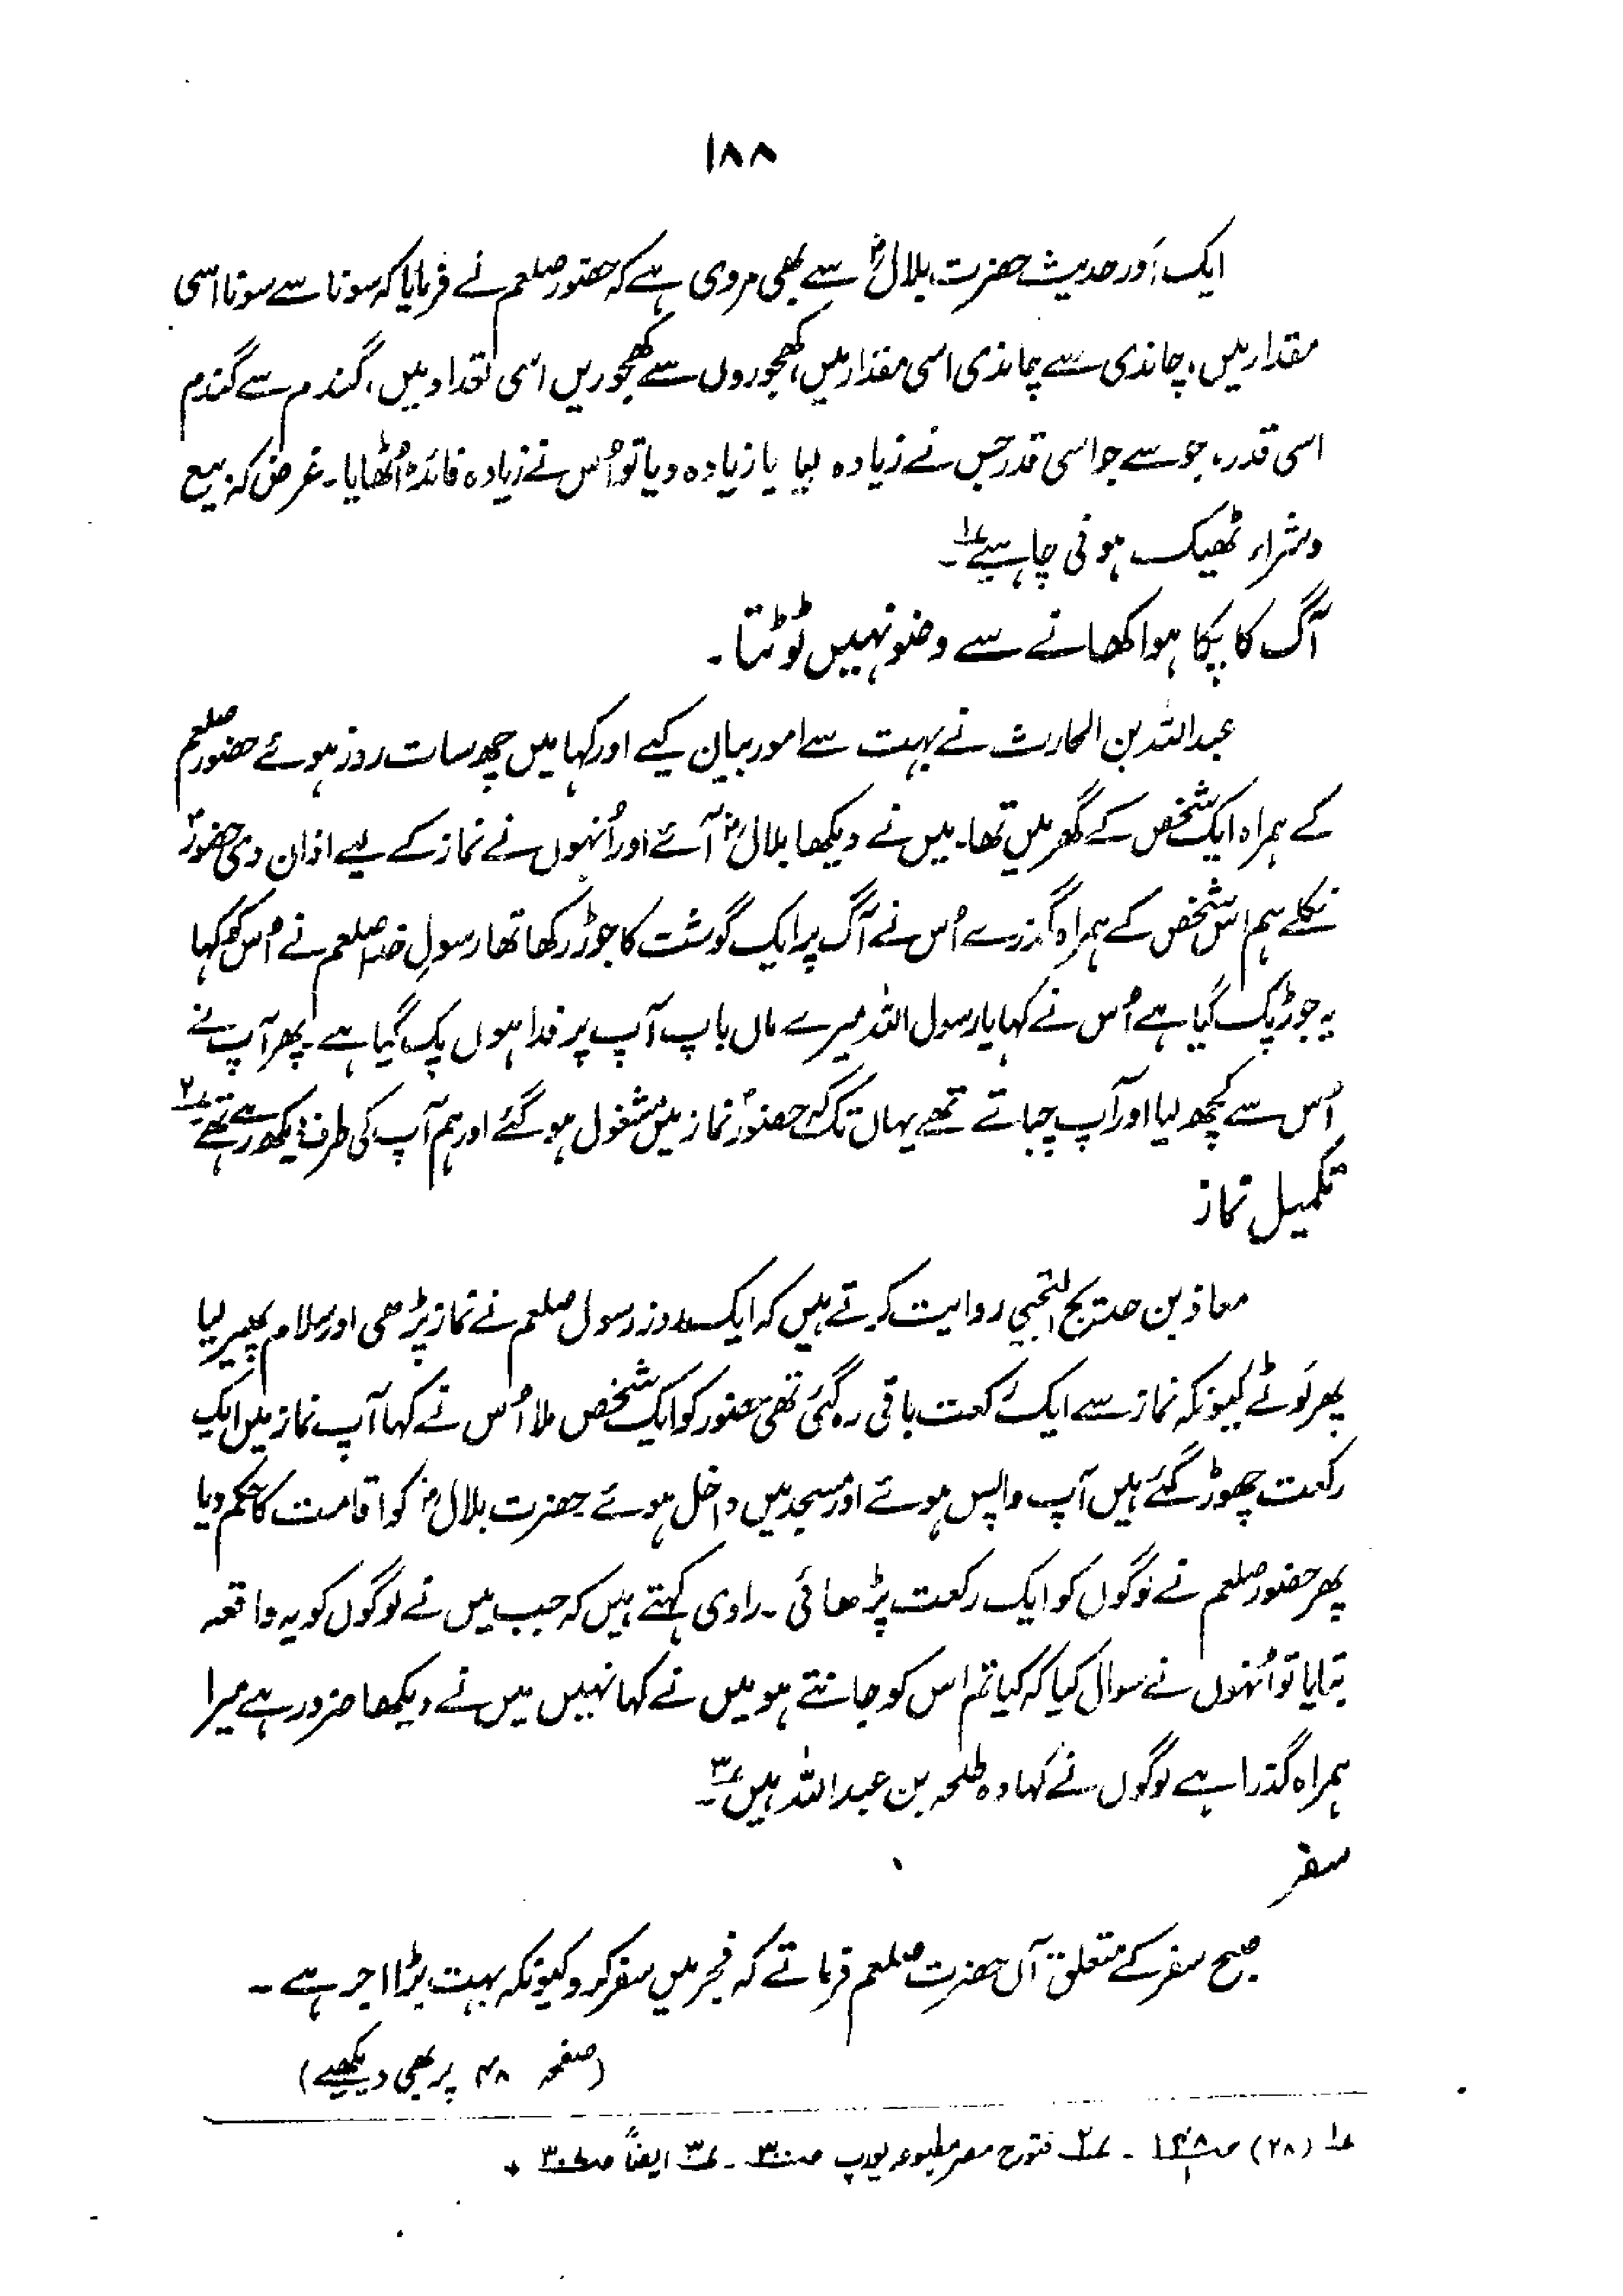 ۱۸۸
ایک اَور حدیث حضرت بلالؓ سے بھی مروی ہے کہ حضور صلعم نے فرمایا کہ سونا سے سونا اسی
مقدار میں، چاندی سے چاندی اسی مقدار میں، کھجوروں سے کھجوریں اسی تعداد میں، گندم سے گندم
اسی قدر، جو سے جو اسی قدر جس نے زیادہ لیا یا زیادہ دیا تو اُس نے زیادہ فائدہ اُٹھایا۔ غرض کہ بیع
وشراء ٹھیک ہونی چاہیے۱۔
آگ کا پکا ہوا کھانے سے وضو نہیں ٹوٹتا۔
عبداللہ بن الحارث نے بہت سے امور بیان کیے اور کہا میں چھ سات روز ہوئے حضور صلعم
کے ہمراہ ایک شخص کے گھر میں تھا۔ میں نے دیکھا بلالؓ آئے اور اُنہوں نے نماز کے لیے اذان دی حضورؐ
نکلے ہم اس شخص کے ہمراہ گذرے اُس نے آگ پر ایک گوشت کا جوڑ رکھا تھا رسولِ خدا صلعم نے اُس کو کہا
یہ جوڑ پک گیا ہے اُس نے کہا یا رسول اللہ میرے ماں باپ آپ پر فدا ہوں پک گیا ہے پھر آپ نے
اُس سے کچھ لیا اور آپ چباتے تھے یہاں تک کہ حضورؐ نماز میں مشغول ہو گئے اور ہم آپ کی طرف دیکھ رہے تھے۲
تکمیل نماز
معاذ بن حدیج التجیبی روایت کرتے ہیں کہ ایک روز رسول صلعم نے نماز پڑھی اور سلام پھیر لیا
پھر لَوٹے کیونکہ نماز سے ایک رکعت باقی رہ گئی تھی حضور کو ایک شخص ملا اُس نے کہا آپ نماز میں ایک
رکعت چھوڑ گئے ہیں آپ واپس ہوئے اور مسجد میں داخل ہوئے حضرت بلالؓ کو اقامت کا حکم دیا
پھر حضور صلعم نے لوگوں کو ایک رکعت پڑھائی۔ راوی کہتے ہیں کہ جب میں نے لوگوں کو یہ واقعہ
بتایا تو اُنہوں نے سوال کیا کہ کیا تم اس کو جانتے ہو میں نے کہا نہیں میں نے دیکھا ضرور ہے میرا
ہمراہ گذرا ہے لوگوں نے کہا وہ طلحہ بن عبداللہ ہیں۳۔
سفر
صبح سفر کے متعلق آں حضرت صلعم فرماتے کہ فجر میں سفر کرو کیونکہ بہت بڑا اجر ہے۔
(صفحہ ۴۸ پر بھی دیکھیے)
۱ (۲۸) ص ۱۴۸ ۔ ۲ فتوح مصر مطبوعہ یورپ ص ۳۰۰ ۔ ۳ ایضاً ص